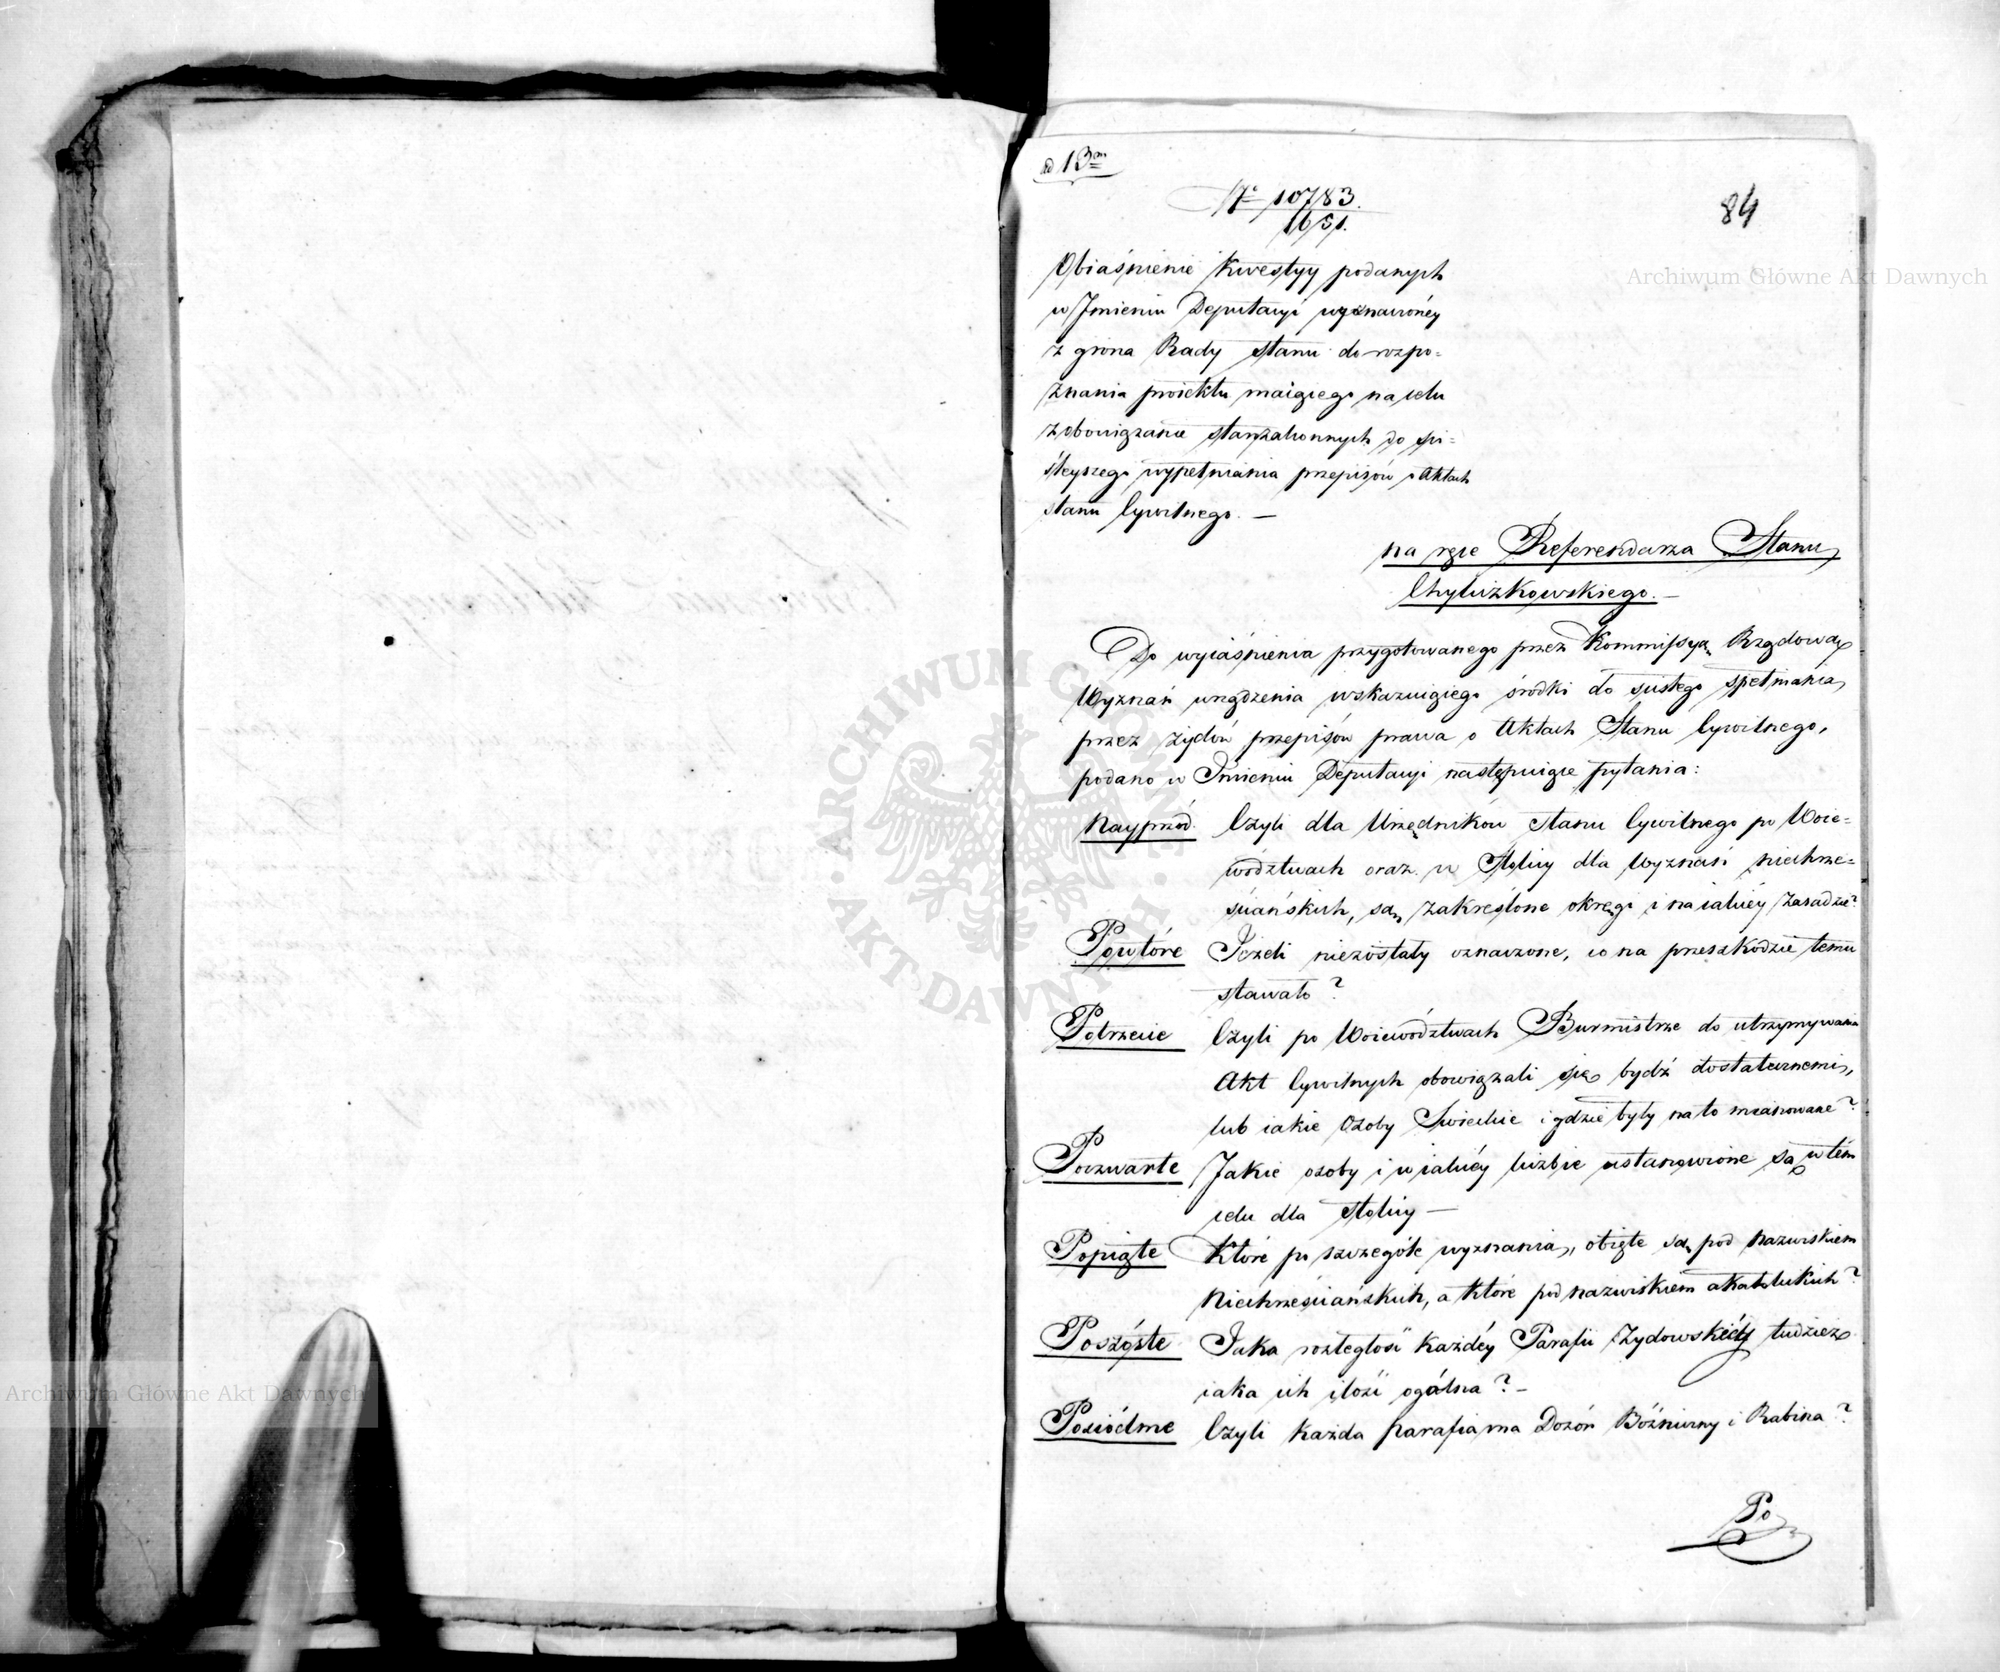 ad 13m
84
Nr 10783.
1651.
Obiaśnienie kwestyy podanych
w Imieniu Deputacyi wyznaczonéy
z grona Rady Stanu do rozpo-
znania proiektu maiącego na celu
zobowiązanie starzakonnych do ści-
śleyszego wypełniania przepisów o Aktach
stanu Cywilnego. —
na ręce Referendarza Stanu
Chyliczkowskiego. —
Do wyiaśnienia przygotowanego przez Kommissyą Rządową
Wyznań urządzenia wskazuiącego środki do ścisłego spełniania
przez żydów przepisów prawa o Aktach Stanu Cywilnego,
podano w Imieniu Deputacyi następuiące pytania:
Nayprzód. Czyli dla Urzędników Stanu Cywilnego po Woie-
wództwach oraz w Stolicy dla Wyznań niechrze-
ściańskich, są zakreślone okręgi i na iakiéy zasadzie?
Powtóre Jeżeli niezostały oznaczone, co na przeszkodzie temu
stawało?
Potrzecie Czyli po Woiewództwach Burmistrze do utrzymywania
Akt Cywilnych obowiązali się bydź dostatecznemi,
lub iakie Osoby Świeckie i gdzie były na to mianowane?
Poczwarte Jakie osoby i w iakiéy liczbie ustanowione są w tém
celu dla Stolicy —
Popiąte Które po szczególe wyznania, obięte są pod nazwiskiem
Niechrześciańskich, a które pod nazwiskiem akatolickich?
Poszóste Jaka rozległość każdéy Parafii Żydowskiéy tudzież
iaka ich ilość ogólna? —
Posiódme Czyli każda parafia ma Dozór Bóżniczny i Rabina?
Po
Archiwum Główne Akt Dawnych
Archiwum Główne Akt Dawnych
ARCHIWUM GŁÓWNE · AKT DAWNYCH ·